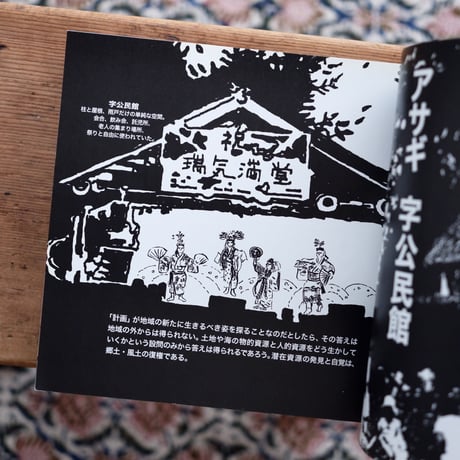 字公民館
柱と屋根、雨戸だけの単純な空間。
会合、飲み会、託児所、
老人の集まり場所、
祭りと自由に使われていた。
祝
瑞気満堂
「計画」が地域の新たに生きるべき姿を探ることなのだとしたら、その答えは
地域の外からは得られない。土地や海の物的資源と人的資源をどう生かして
いくかという設問のみから答えは得られるであろう。潜在資源の発見と自覚は、
郷土・風土の復権である。
アサギ 字公民館